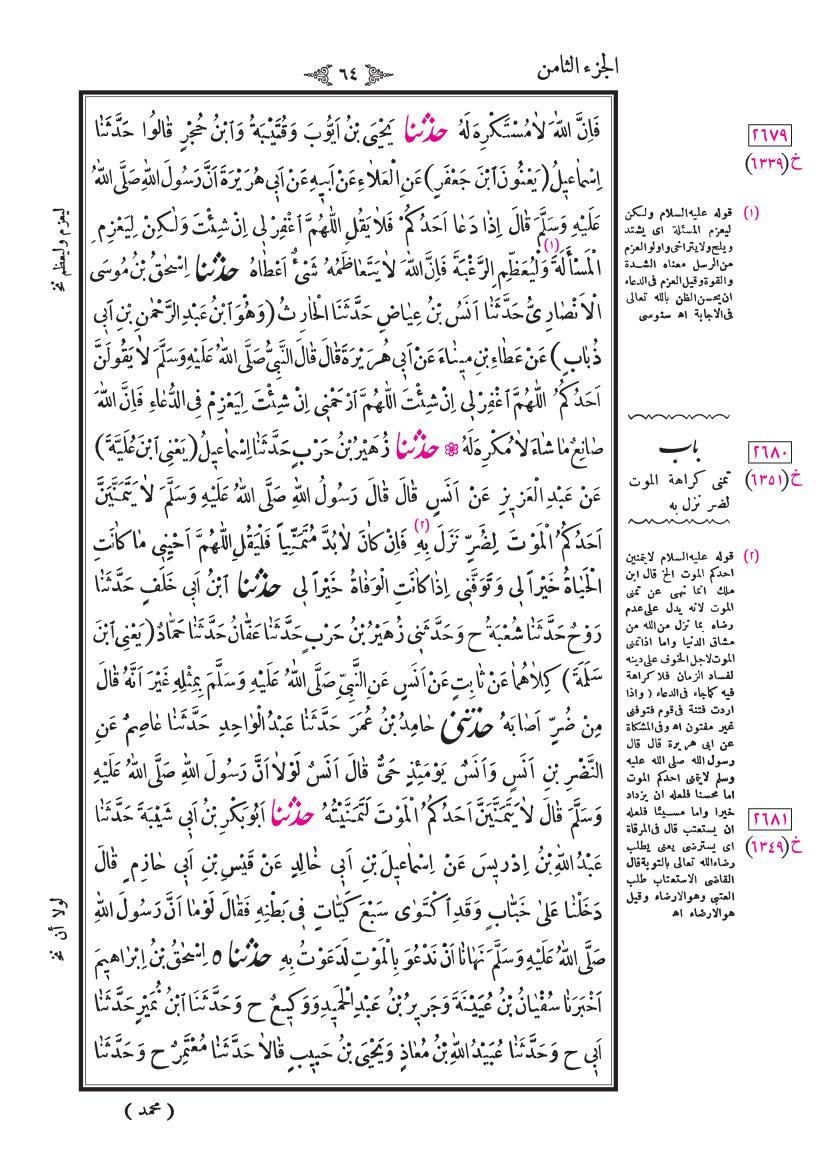 الجزء الثامن
٦٤
فَاِنَّ اللهَ لاٰ مُسْتَكْرِهَ لَهُ حَدَّثَنَا يَحْيَى بْنُ اَيُّوبَ وَقُتَيْبَةُ وَابْنُ حُجْرٍ قٰالُوا حَدَّثَنٰا
اِسْمٰاعِيلُ (يَعْنُونَ ابْنَ جَعْفَرٍ) عَنِ الْعَلاٰءِ عَنْ اَبِيهِ عَنْ اَبِي هُرَيْرَةَ اَنَّ رَسُولَ اللهِ صَلَّى اللهُ
عَلَيْهِ وَسَلَّمَ قٰالَ اِذٰا دَعٰا اَحَدُكُمْ فَلاٰ يَقُلِ اللّٰهُمَّ اغْفِرْ لِي اِنْ شِئْتَ وَلٰكِنْ لِيَعْزِمِ
الْمَسْأَلَةَ (١) وَلْيُعَظِّمِ الرَّغْبَةَ فَاِنَّ اللهَ لاٰ يَتَعٰاظَمُهُ شَيْءٌ اَعْطٰاهُ حَدَّثَنَا اِسْحٰقُ بْنُ مُوسَى
الْاَنْصٰارِيُّ حَدَّثَنٰا اَنَسُ بْنُ عِيٰاضٍ حَدَّثَنَا الْحٰارِثُ (وَهُوَ ابْنُ عَبْدِ الرَّحْمٰنِ بْنِ اَبِي
ذُبٰابٍ) عَنْ عَطٰاءِ بْنِ مِينٰاءَ عَنْ اَبِي هُرَيْرَةَ قٰالَ قٰالَ النَّبِيُّ صَلَّى اللهُ عَلَيْهِ وَسَلَّمَ لاٰ يَقُولَنَّ
اَحَدُكُمُ اللّٰهُمَّ اغْفِرْ لِي اِنْ شِئْتَ اللّٰهُمَّ ارْحَمْنِي اِنْ شِئْتَ لِيَعْزِمْ فِي الدُّعٰاءِ فَاِنَّ اللهَ
صٰانِعٌ مٰا شٰاءَ لاٰ مُكْرِهَ لَهُ ۞ حَدَّثَنَا زُهَيْرُ بْنُ حَرْبٍ حَدَّثَنٰا اِسْمٰاعِيلُ (يَعْنِي ابْنَ عُلَيَّةَ)
عَنْ عَبْدِ الْعَزِيزِ عَنْ اَنَسٍ قٰالَ قٰالَ رَسُولُ اللهِ صَلَّى اللهُ عَلَيْهِ وَسَلَّمَ لاٰ يَتَمَنَّيَنَّ
اَحَدُكُمُ الْمَوْتَ لِضُرٍّ نَزَلَ بِهِ (٢) فَاِنْ كٰانَ لاٰ بُدَّ مُتَمَنِّياً فَلْيَقُلِ اللّٰهُمَّ اَحْيِنِي مٰا كٰانَتِ
الْحَيٰاةُ خَيْراً لِي وَتَوَفَّنِي اِذٰا كٰانَتِ الْوَفٰاةُ خَيْراً لِي حَدَّثَنَا ابْنُ اَبِي خَلَفٍ حَدَّثَنٰا
رَوْحٌ حَدَّثَنٰا شُعْبَةُ ح وَحَدَّثَنِي زُهَيْرُ بْنُ حَرْبٍ حَدَّثَنٰا عَفّٰانُ حَدَّثَنٰا حَمّٰادٌ (يَعْنِي ابْنَ
سَلَمَةَ) كِلاٰهُمٰا عَنْ ثٰابِتٍ عَنْ اَنَسٍ عَنِ النَّبِيِّ صَلَّى اللهُ عَلَيْهِ وَسَلَّمَ بِمِثْلِهِ غَيْرَ اَنَّهُ قٰالَ
مِنْ ضُرٍّ اَصٰابَهُ حَدَّثَنِي حٰامِدُ بْنُ عُمَرَ حَدَّثَنٰا عَبْدُ الْوٰاحِدِ حَدَّثَنٰا عٰاصِمٌ عَنِ
النَّضْرِ بْنِ اَنَسٍ وَاَنَسٌ يَوْمَئِذٍ حَيٌّ قٰالَ اَنَسٌ لَوْلاٰ اَنَّ رَسُولَ اللهِ صَلَّى اللهُ عَلَيْهِ
وَسَلَّمَ قٰالَ لاٰ يَتَمَنَّيَنَّ اَحَدُكُمُ الْمَوْتَ لَتَمَنَّيْتُهُ حَدَّثَنَا اَبُو بَكْرِ بْنُ اَبِي شَيْبَةَ حَدَّثَنٰا
عَبْدُ اللهِ بْنُ اِدْرِيسَ عَنْ اِسْمٰاعِيلَ بْنِ اَبِي خٰالِدٍ عَنْ قَيْسِ بْنِ اَبِي حٰازِمٍ قٰالَ
دَخَلْنٰا عَلىٰ خَبّٰابٍ وَقَدِ اكْتَوٰى سَبْعَ كَيّٰاتٍ فِي بَطْنِهِ فَقٰالَ لَوْمٰا اَنَّ رَسُولَ اللهِ
صَلَّى اللهُ عَلَيْهِ وَسَلَّمَ نَهٰانٰا اَنْ نَدْعُوَ بِالْمَوْتِ لَدَعَوْتُ بِهِ حَدَّثَنَا ٥ اِسْحٰقُ بْنُ اِبْرٰاهِيمَ
اَخْبَرَنٰا سُفْيٰانُ بْنُ عُيَيْنَةَ وَجَرِيرُ بْنُ عَبْدِ الْحَمِيدِ وَوَكِيعٌ ح وَحَدَّثَنَا ابْنُ نُمَيْرٍ حَدَّثَنٰا
اَبِي ح وَحَدَّثَنٰا عُبَيْدُ اللهِ بْنُ مُعٰاذٍ وَيَحْيَى بْنُ حَبِيبٍ قٰالاٰ حَدَّثَنٰا مُعْتَمِرٌ ح وَحَدَّثَنٰا
( محمد )
٢٦٧٩
خ (٦٣٣٩)
(١) قوله عليه السلام ولكن
ليعزم المسئلة اى يشتد
ويلح ولا يتراخى واولو العزم
من الرسل معناه الشدة
والقوة وقيل العزم فى الدعاء
ان يحسن الظن بالله تعالى
فى الاجابة اه سنوسى
باب
تمنى كراهة الموت
لضر نزل به
٢٦٨٠
خ (٦٣٥١)
(٢) قوله عليه السلام لايتمنين
احدكم الموت الخ قال ابن
ملك انما نهى عن تمنى
الموت لانه يدل على عدم
رضاه بما نزل من الله من
مشاق الدنيا واما اذا تمنى
الموت لاجل الخوف على دينه
لفساد الزمان فلا كراهة
فيه كما جاء فى الدعاء ( واذا
اردت فتنة فى قوم فتوفنى
غير مفتون اه وفى المشكاة
عن ابى هريرة قال قال
رسول الله صلى الله عليه
وسلم لايتمنى احدكم الموت
اما محسنا فلعله ان يزداد
خيرا واما مسيئا فلعله
ان يستعتب قال فى المرقاة
اى يسترضى يعنى يطلب
رضاء الله تعالى بالتوبة قال
القاضى الاستعتاب طلب
العتبى وهو الارضاء وقيل
هو الارضاء اه
٢٦٨١
خ (٦٣٤٩)
ليعزم وليعظم نخ
لولا أن نخ